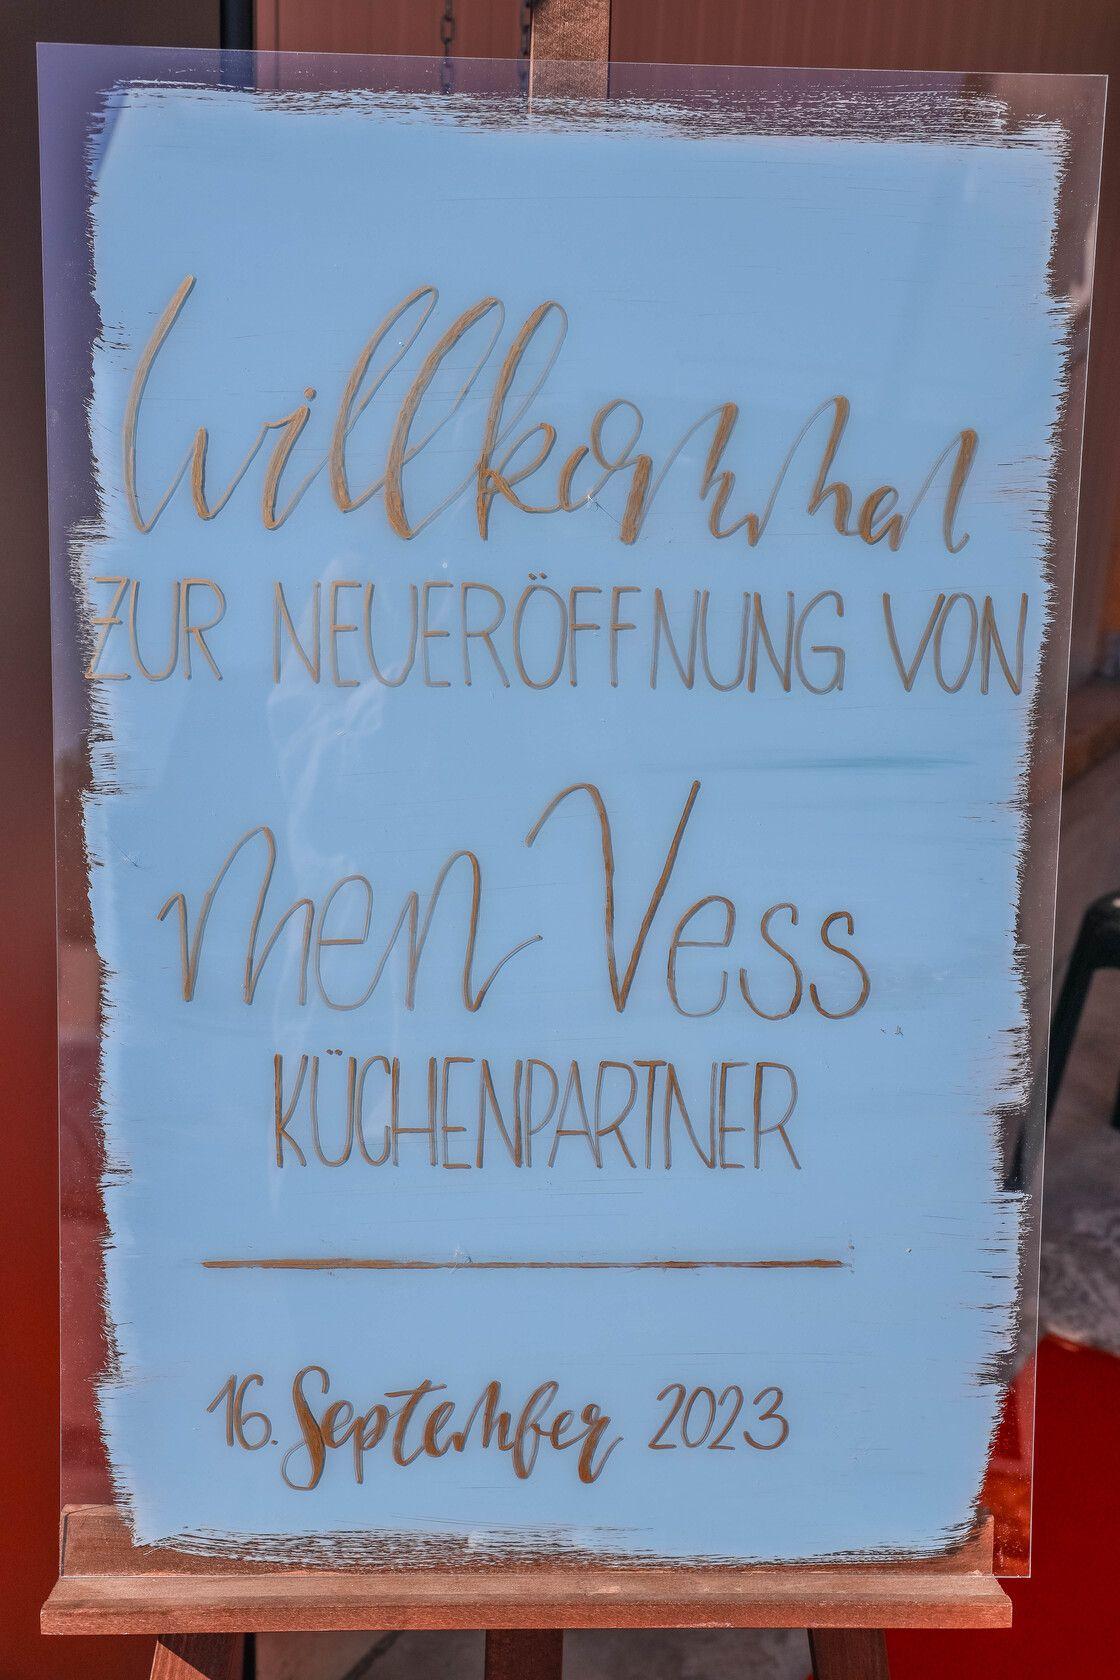 Willkommen
ZUR NEUERÖFFNUNG VON
men Vess
KÜCHENPARTNER
16. September 2023